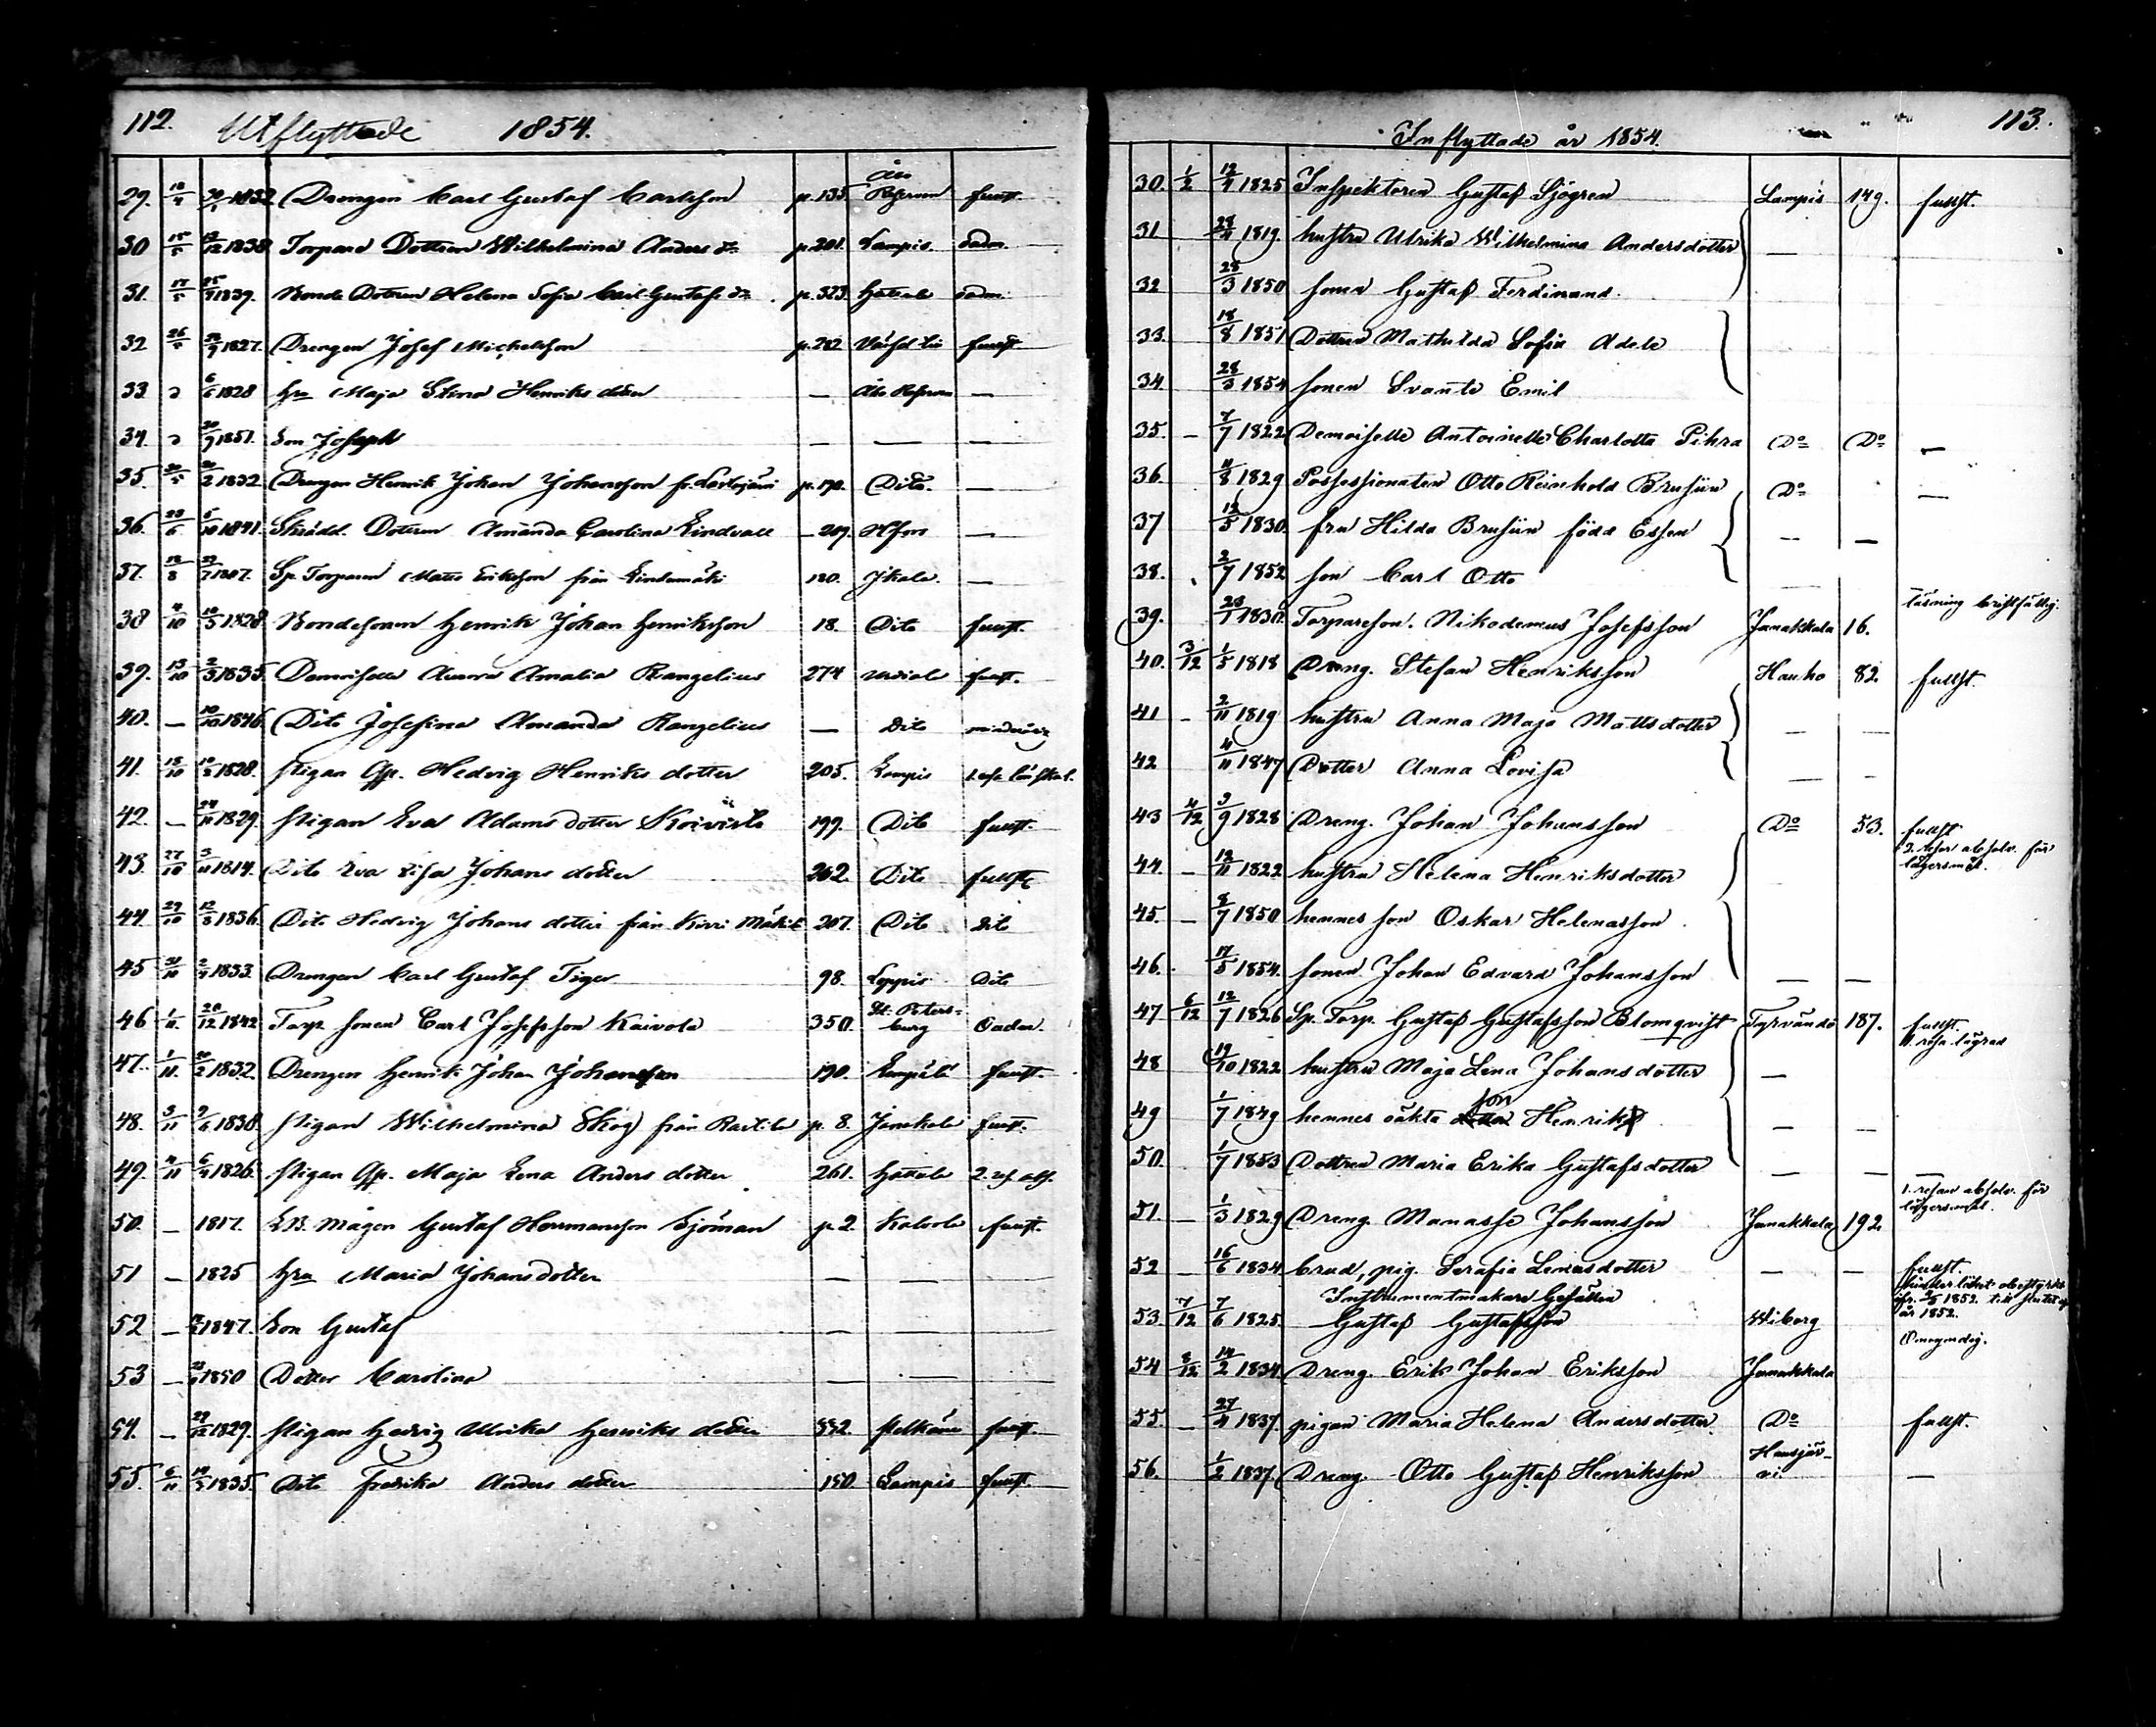 112. Utflyttade 1854.
29. 18/4 1832 Drengen Carl Gustaf Carlsson p. 135. Åbo fullst.
30 15/5 /12 1838 Torpare Dottren Wilhelmina Anders dr p. 201. Lampis oadm.
31. 17/5 25/9 1839. Bonde Dottren Helena Sofia Carl Gustafs dr. p. 323. Hattula oadm.
32 26/5 /9 1827. Drengen Josef Michelsson p. 282 fullst.
33 d 6/6 1828 hru Maja Stina Henriks dotter — Åbo —
34. d 20/9 1851. Son Joseph — — —
35. /5 /2 1832. Drengen Henrik Johan Johansson fr. p. 190. Dito. —
36. 23/6 5/10 1841. Skrädd. Dottren Amanda Carolina Lindvall — 209. Hfors —
37. 12/8 /7 1807. Sp. Torparen Matts Eriksson från Lindemäki 120. —
38 4/10 10/5 1828 Bondesonen Henrik Johan Henriksson 18. Dito fullst.
39. 13/10 2/3 1835. Demoiselle Aurora Amalia Rangelius 274 fullst.
40. — 10/10 1846 Dito Josefina Amanda Rangelius — Dito minderårig
41. 18/10 1828. Pigan Hedvig Henriks dotter 205. Lampis
42. — 24/11 1829. Pigan Eva Adams dotter Koivisto 199. Dito fullst.
43. 27/10 3/11 1814. Dito Eva Lisa Johans dotter 262. Dito fullst
44. 29/10 12/3 1836. Dito Hedvig Johans dotter från 207. Dito dito
45 31/10 2/4 1833. Drengen Carl Gustaf Tiger 98. Loppis Dito
46 1/11. 20/12 1842 Torp. sonen Carl Josefsson Kaivola 350. St. Peters-
burg Oadm.
47. 1/11. 20/2 1832. Drengen Henrik Johan Johansson 190. fullst.
48. 3/11 9/6 1838. Pigan Wilhelmina Skog från p. 8. Janakkala fullst.
49. 4/11 6/4 1826. Pigan Maja Lena Anders dotter 261. Hattula
50. — 1817. Mågen Gustaf Hermansson Sjöman p. 2. Kalvola fullst.
51 — 1825 hru Maria Johans dotter — — —
52 — 1847 Son Gustaf — — —
53 — 1850 Dotter Carolina — — —
54. — 29/12 1829. Pigan Hedvig Ulrika Henriks dotter fullst.
55. 6/11 14/5 1835. Dito Fredrika Anders dotter 150. Lampis fullst.
Inflyttade år 1854. 113.
30. 1/2 12/4 1825 Inspektoren Gustaf Sjögren Lampis 149. fullst.
31 1819. hustru Ulrika Wilhelmina Andersdotter —
32 28/3 1850 sonen Gustaf Ferdinand.
33. 18/8 1851 Dottren Mathilda Sofia Adele
34 28/3 1854 sonen Svante Emil
35. — 7/7 1822 Demoiselle Antoinette Charlotte Pihra Do Do —
36. 11/8 1829 Possessionaten Otto Reinhold Brusiin Do —
37 12/5 1830. fru Hilda Brusiin född Essen — —
38. 2/7 1852 son Carl Otto —
39. 23/1 1830. Torpareson. Nikodemus Josefsson Janakkala 16. läsning bristfällig.
40. 3/12 1/5 1818 Dreng. Stefan Henriksson Hauho 82. fullst.
41 — 2/11 1819 hustru Anna Maja Mattsdotter — —
42 4/11 1847 Dotter Anna Lovisa — —
43 4/12 3/9 1828 Dreng. Johan Johansson Do 53. fullst
44. — 12/11 1822 hustru Helena Henriksdotter — 2. resor absolv. för
lägersmål.
45. — 8/7 1850 hennes son Oskar Helenasson
46. 17/5 1854. sonen Johan Edvard Johansson — —
47 6/12 12/7 1826 Sp. Torp. Gustaf Gustafsson Blomqvist Tyrvändö 187. fullst.
48 19/10 1822 hustru Maja Lena Johansdotter —
49 1/7 1849 hennes oäkta son Henrik — —
50. 1/7 1853 Dottren Maria Erika Gustafsdotter — — —
51. — 1/3 1829 Dreng. Manasse Johansson Janakkala 192 1. resan absolv. för
lägersmål.
52 — 16/6 1834 brud, pig. Serafia Linusdotter — — fullst.
Instrumentmakare Gesällen
53. 7/12 7/6 1825. Gustaf Gustafsson Wiborg
år 1852.
54 8/12 14/2 1834 Dreng. Erik Johan Eriksson Janakkala Omyndig.
55. — 27/4 1837. pigan Maria Helena Andersdotter. Do fullst.
56. 1/2 1837. Dreng. Otto Gustaf Henriksson Hausjär-
vi —